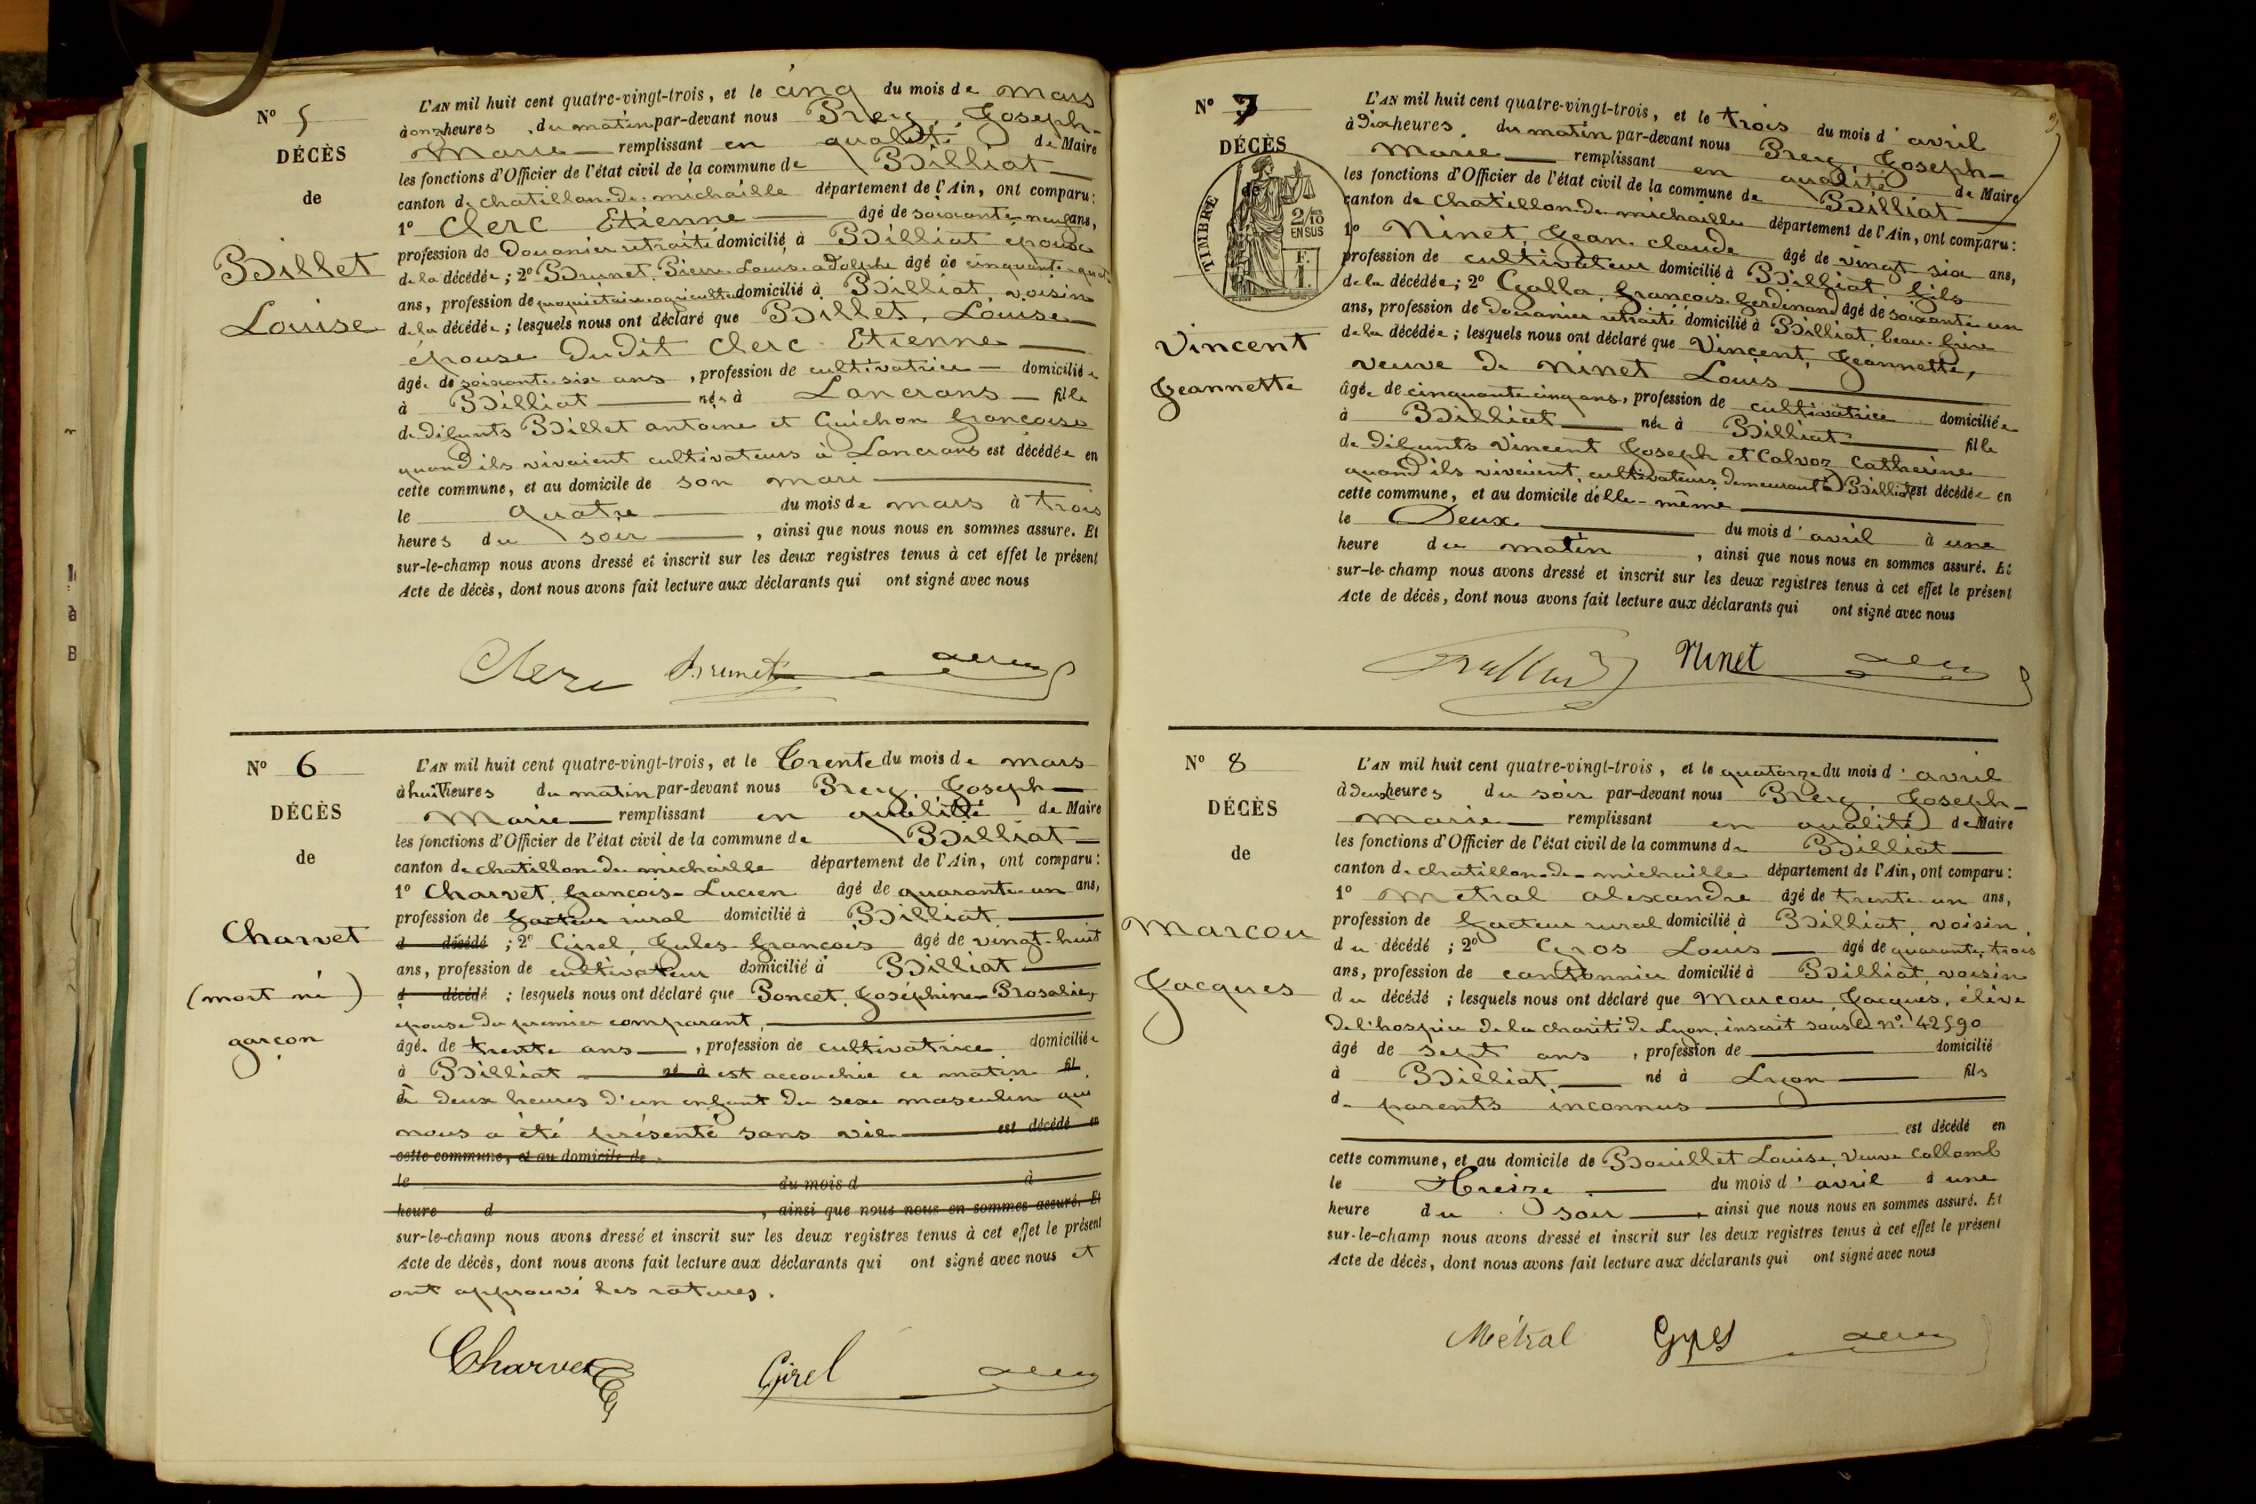 N° 5
DÉCÈS
de
Billet
Louise
L'AN mil huit cent quatre-vingt-trois, et le cinq du mois de mars
à onze heures du matin par-devant nous Prery, Joseph-
Marie remplissant en qualité de Maire
les fonctions d'Officier de l'état civil de la commune de Billiat
canton de Chatillon-de-michaille département de l'Ain, ont comparu:
1° Clerc Etienne âgé de soixante-neuf ans,
profession de Douanier retraité domicilié à Billiat époux
de la décédée; 2° Brunet, Pierre-Louis-adolphe âgé de cinquante
ans, profession de propriétaire domicilié à Billiat, voisin
de la décédée; lesquels nous ont déclaré que Billet, Louise
épouse Dudit Clerc Etienne
âgée de soixante-six ans, profession de cultivatrice domiciliée
à Billiat née à Lancrans fille
de Défunts Billet antoine et Guichon françoise
quand ils vivaient cultivateurs à Lancrans est décédée en
cette commune, et au domicile de son mari
le quatre du mois de mars à trois
heures du soir, ainsi que nous nous en sommes assuré. Et
sur-le-champ nous avons dressé et inscrit sur les deux registres tenus à cet effet le présent
Acte de décès, dont nous avons fait lecture aux déclarants qui ont signé avec nous
Clerc Brunet
N° 6
DÉCÈS
de
Charvet
(mort né)
garçon
L'AN mil huit cent quatre-vingt-trois, et le Trente du mois de mars
à huit heures du matin par-devant nous Prery, Joseph-
Marie remplissant en qualité de Maire
les fonctions d'Officier de l'état civil de la commune de Billiat
canton de Chatillon-de-michaille département de l'Ain, ont comparu:
1° Charvet, françois-Lucien âgé de quarante-un ans,
profession de facteur rural domicilié à Billiat
d décédé; 2° Girel, Jules-françois âgé de vingt-huit
ans, profession de cultivateur domicilié à Billiat
d décédé; lesquels nous ont déclaré que Poncet, Joséphine-Rosalie,
épouse du premier comparant,
âgée de trente ans, profession de cultivatrice domiciliée
à Billiat né à est accouchée ce matin fil
à deux heures d'un enfant du sexe masculin qui
nous a été présenté sans vie est décédé en
cette commune, et au domicile de
le du mois d à
heure d, ainsi que nous nous en sommes assuré. Et
sur-le-champ nous avons dressé et inscrit sur les deux registres tenus à cet effet le présent
Acte de décès, dont nous avons fait lecture aux déclarants qui ont signé avec nous et
ont approuvé les ratures.
Charvet Girel
N° 7
DÉCÈS
de
TIMBRE
2/10 EN SUS
F. 1
Vincent
Jeannette
L'AN mil huit cent quatre-vingt-trois, et le trois du mois d'avril
à Dix heures du matin par-devant nous Prery, Joseph-
Marie remplissant en qualité de Maire
les fonctions d'Officier de l'état civil de la commune de Billiat
canton de Chatillon-de-michaille département de l'Ain, ont comparu:
1° Ninet, Jean-claude âgé de vingt-six ans,
profession de cultivateur domicilié à Billiat, fils
de la décédée; 2° françois-ferdinand âgé de soixante-un
ans, profession de Douanier retraité domicilié à Billiat, beau-frère
de la décédée; lesquels nous ont déclaré que Vincent, Jeannette,
veuve de Ninet Louis
âgée de cinquante-cinq ans, profession de cultivatrice domiciliée
à Billiat née à Billiat fille
de Défunts Vincent Joseph et Calvoz Catherine
quand ils vivaient, cultivateurs demeurant à Billiat est décédée en
cette commune, et au domicile d'elle-même
le Deux du mois d'avril à une
heure du matin, ainsi que nous nous en sommes assuré. Et
sur-le-champ nous avons dressé et inscrit sur les deux registres tenus à cet effet le présent
Acte de décès, dont nous avons fait lecture aux déclarants qui ont signé avec nous
Ninet
N° 8
DÉCÈS
de
Marcou
Jacques
L'AN mil huit cent quatre-vingt-trois, et le quatorze du mois d'avril
à deux heures du soir par-devant nous Prery, Joseph-
Marie remplissant en qualité de Maire
les fonctions d'Officier de l'état civil de la commune de Billiat
canton de chatillon-de-michaille département de l'Ain, ont comparu:
1° Metral alexandre âgé de trente-un ans,
profession de facteur rural domicilié à Billiat, voisin,
du décédé; 2° Gros Louis âgé de quarante-trois
ans, profession de cantonnier domicilié à Billiat, voisin
du décédé; lesquels nous ont déclaré que Marcou Jacques, élève
de l'hospice de la charité de Lyon, inscrit sous le n° 42590
âgé de sept ans, profession de domicilié
à Billiat, né à Lyon fils
de parents inconnus
est décédé en
cette commune, et au domicile de Bouillet Louise, Veuve Collomb
le Treize du mois d'avril à une
heure du soir, ainsi que nous nous en sommes assuré. Et
sur-le-champ nous avons dressé et inscrit sur les deux registres tenus à cet effet le présent
Acte de décès, dont nous avons fait lecture aux déclarants qui ont signé avec nous
Métral Gros